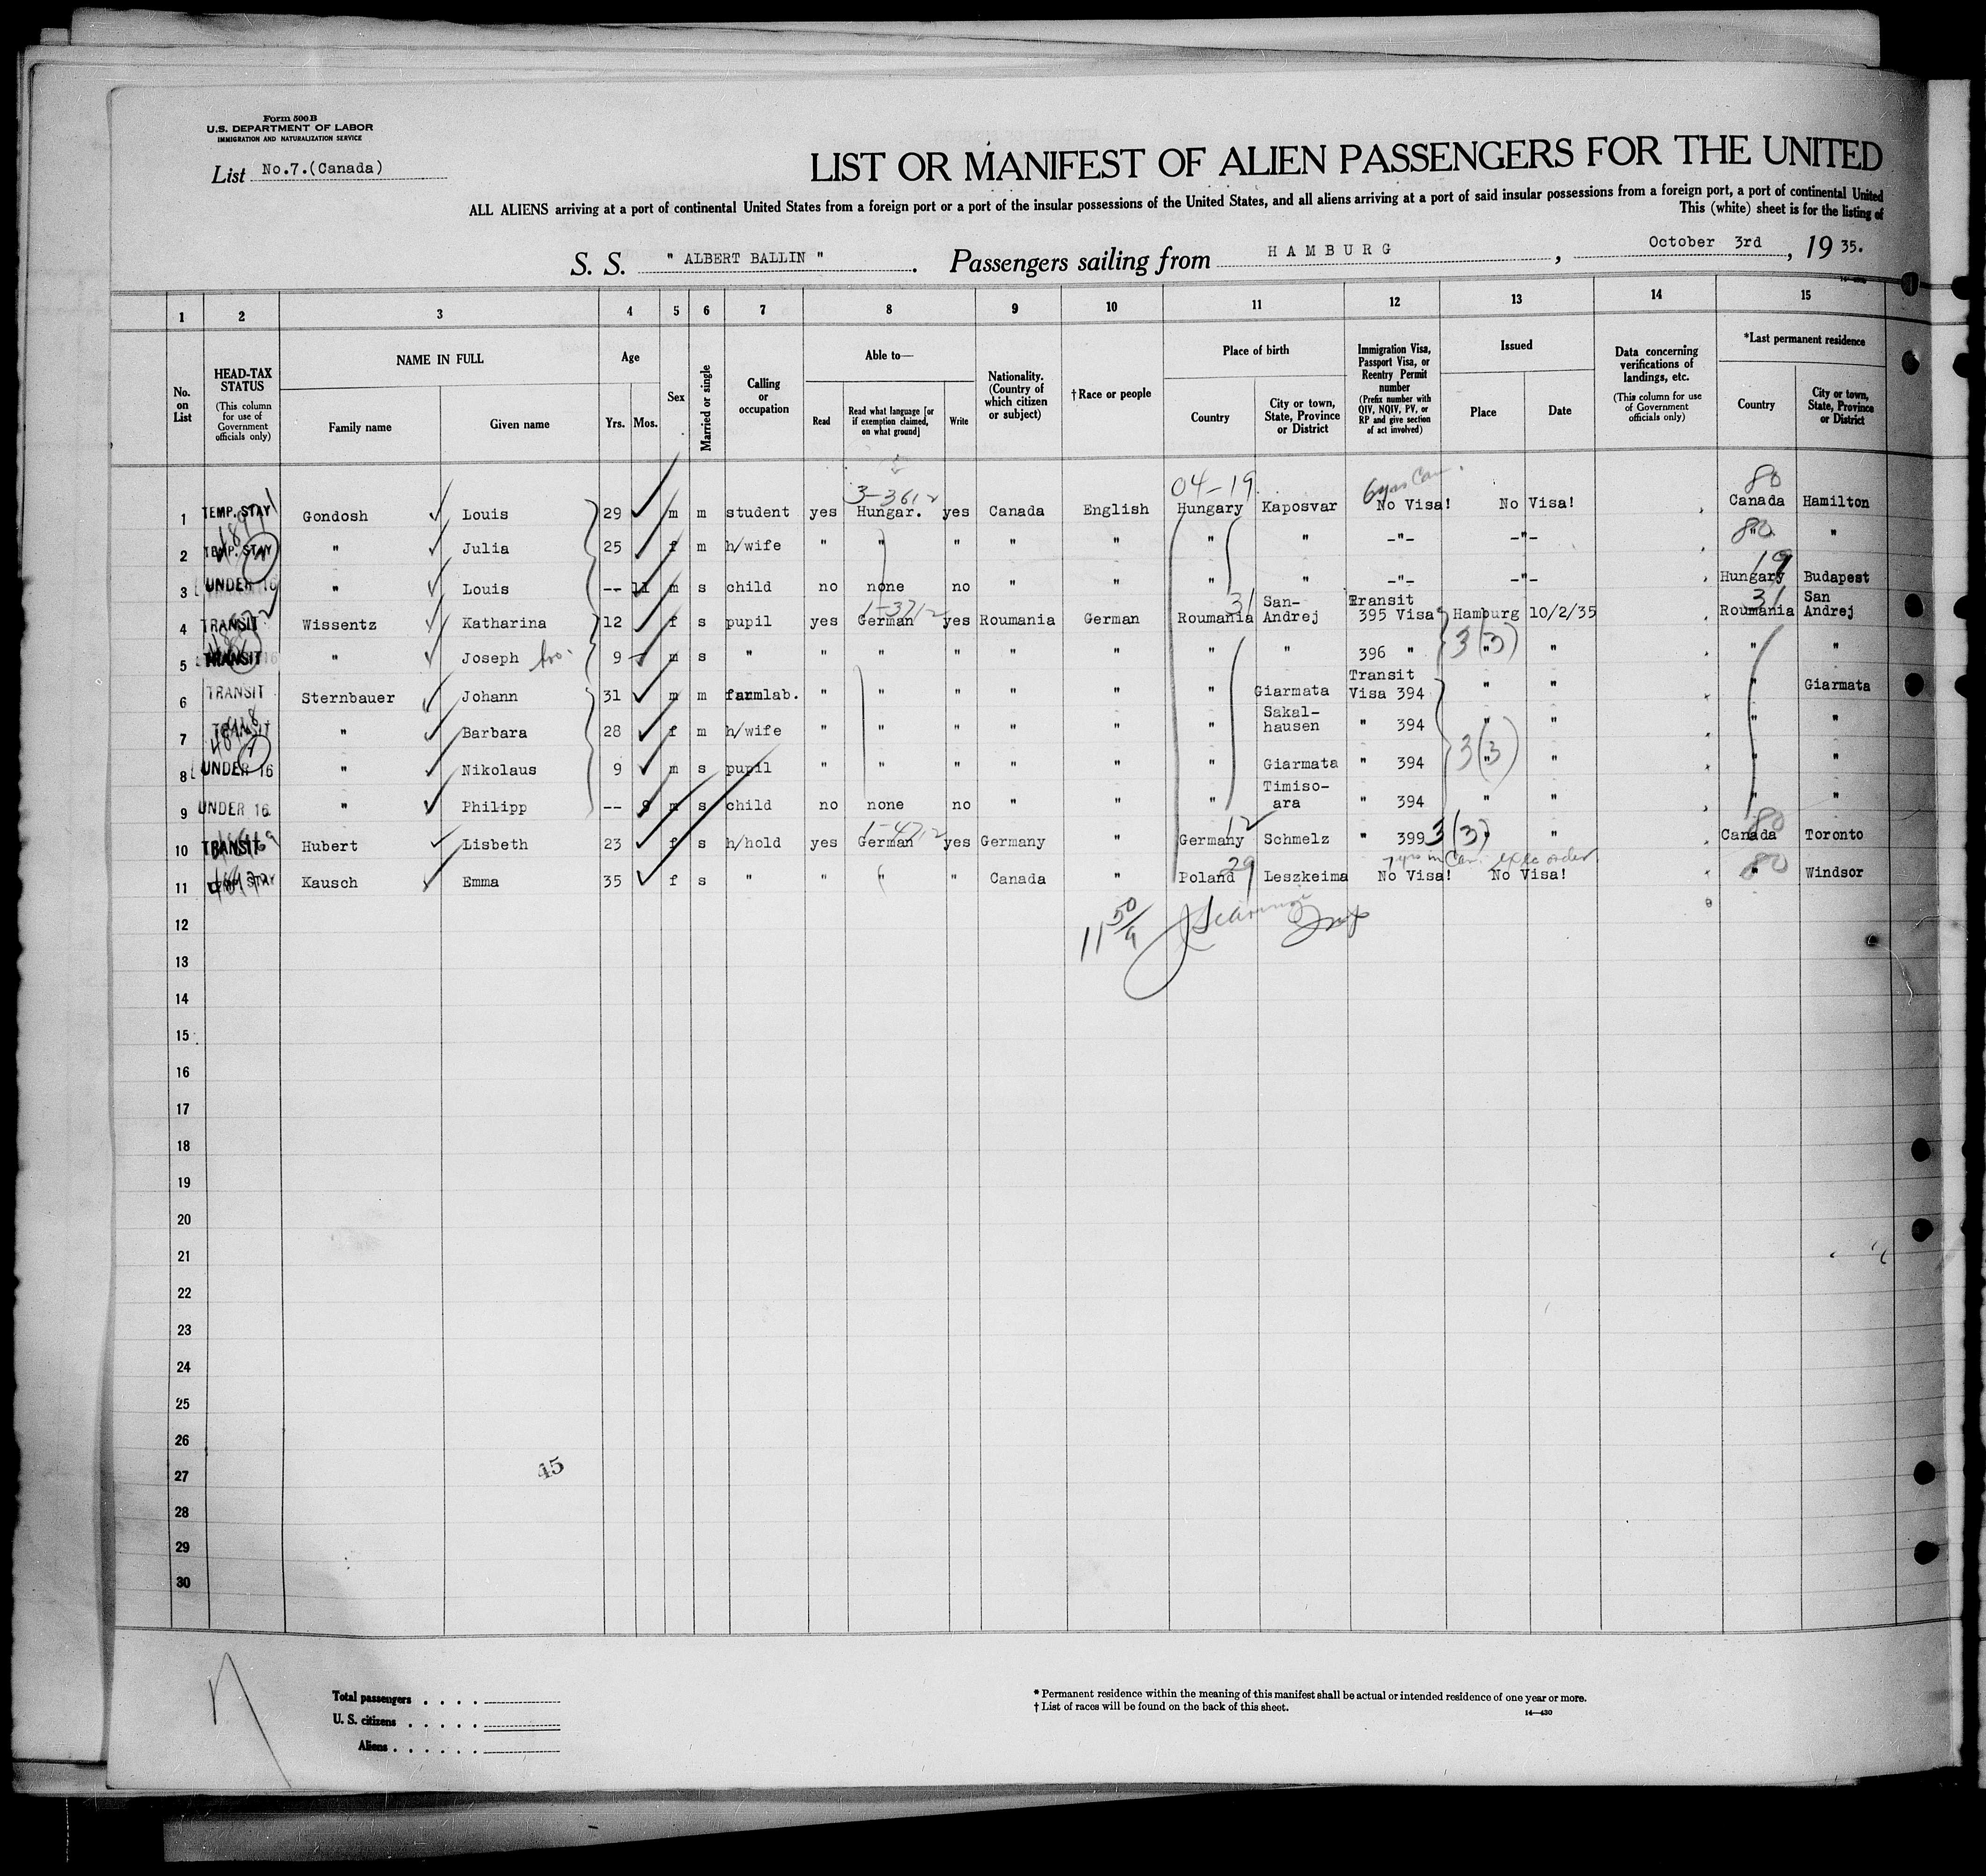 Form 500 B
U.S. DEPARTMENT OF LABOR
IMMIGRATION AND NATURALIZATION SERVICE
List No.7.(Canada)
LIST OR MANIFEST OF ALIEN PASSENGERS FOR THE UNITED
ALL ALIENS arriving at a port of continental United States from a foreign port or a port of the insular possessions of the United States, and all aliens arriving at a port of said insular possessions from a foreign port, a port of continental United
This (white) sheet is for the listing of
S. S. " ALBERT BALLIN " . Passengers sailing from H A M B U R G , October 3rd , 19 35.
1 2 3 4 5 6 7 8 9 10 11 12 13 14 15
No. on List
HEAD-TAX STATUS
(This column for use of Government officials only)
NAME IN FULL
Family name Given name
Age
Yrs. Mos.
Sex
Married or single
Calling or occupation
Able to—
Read Read what language [or if exemption claimed, on what ground] Write
Nationality. (Country of which citizen or subject)
†Race or people
Place of birth
Country City or town, State, Province or District
Immigration Visa, Passport Visa, or Reentry Permit number
(Prefix number with QIV, NQIV, PV, or RP and give section of act involved)
Issued
Place Date
Data concerning verifications of landings, etc.
(This column for use of Government officials only)
*Last permanent residence
Country City or town, State, Province or District
3-3612 04-19 6 yrs Can. 80
1 TEMP. STAY Gondosh Louis 29 m m student yes Hungar. yes Canada English Hungary Kaposvar No Visa! No Visa! Canada Hamilton
2 TEMP. STAY " Julia 25 f m h/wife " " " " " " " -"- -"- 80 " "
3 UNDER 16 " Louis -- 11 m s child no none no " " " " -"- -"- 19 Hungary Budapest
4 TRANSIT Wissentz Katharina 12 f s pupil yes 1-3712 German yes Roumania German Roumania 31 San-Andrej Transit 395 Visa Hamburg 10/2/35 31 Roumania San Andrej
5 TRANSIT " Joseph bro. 9 - m s " " " " " " " " 396 " 3(3) " " " "
6 TRANSIT Sternbauer Johann 31 m m farmlab. " " " " " " Giarmata Transit Visa 394 " " " Giarmata
7 TRANSIT " Barbara 28 f m h/wife " " " " " " Sakal-hausen " 394 " " " "
8 UNDER 16 " Nikolaus 9 m s pupil " " " " " " Giarmata " 394 3(3) " " " "
9 UNDER 16 " Philipp -- 8 m s child no none no " " " Timiso-ara " 394 " " " "
10 TRANSIT Hubert Lisbeth 23 f s h/hold yes 1-4712 German yes Germany " Germany 12 Schmelz " 399 3(3) " " 80 Canada Toronto
11 TEMP. STAY Kausch Emma 35 f s " " " " Canada " Poland 29 Leszkeima 7 yrs in Can. exec order No Visa! No Visa! 80 " Windsor
12 11 50/9
13
14
15
16
17
18
19
20
21
22
23
24
25
26
27
28
29
30
45
Total passengers . . . .
U. S. citizens . . . . .
Aliens . . . . . .
* Permanent residence within the meaning of this manifest shall be actual or intended residence of one year or more.
† List of races will be found on the back of this sheet.
14—430